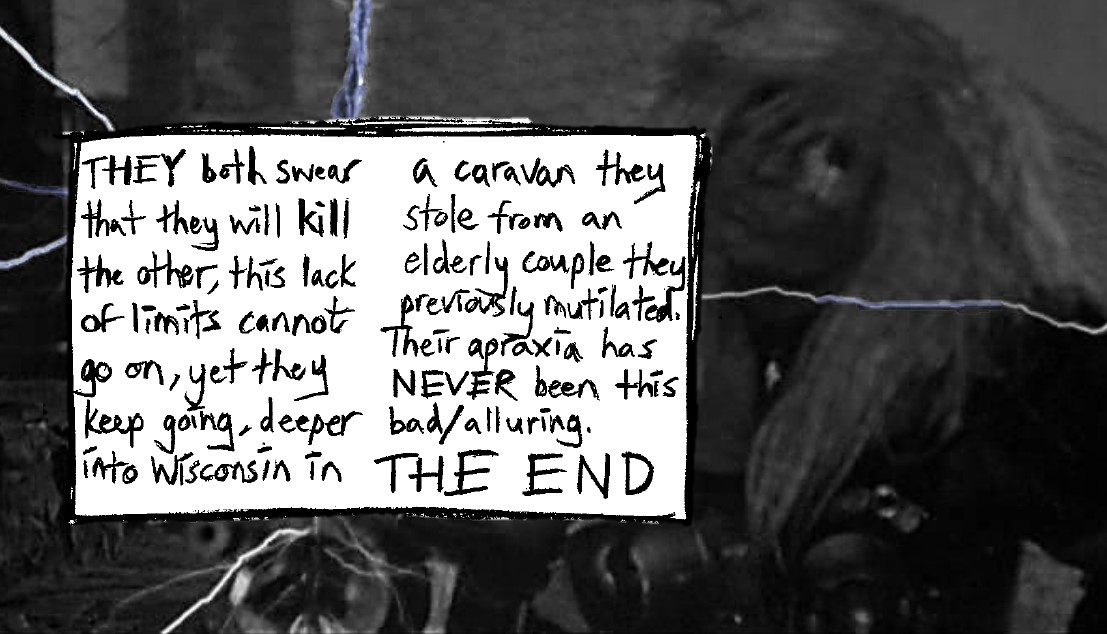 THEY both swear
that they will kill
the other, this lack
of limits cannot
go on, yet they
keep going, deeper
into Wisconsin in
a caravan they
stole from an
elderly couple they
previously mutilated.
Their apraxia has
NEVER been this
bad/alluring.
THE END